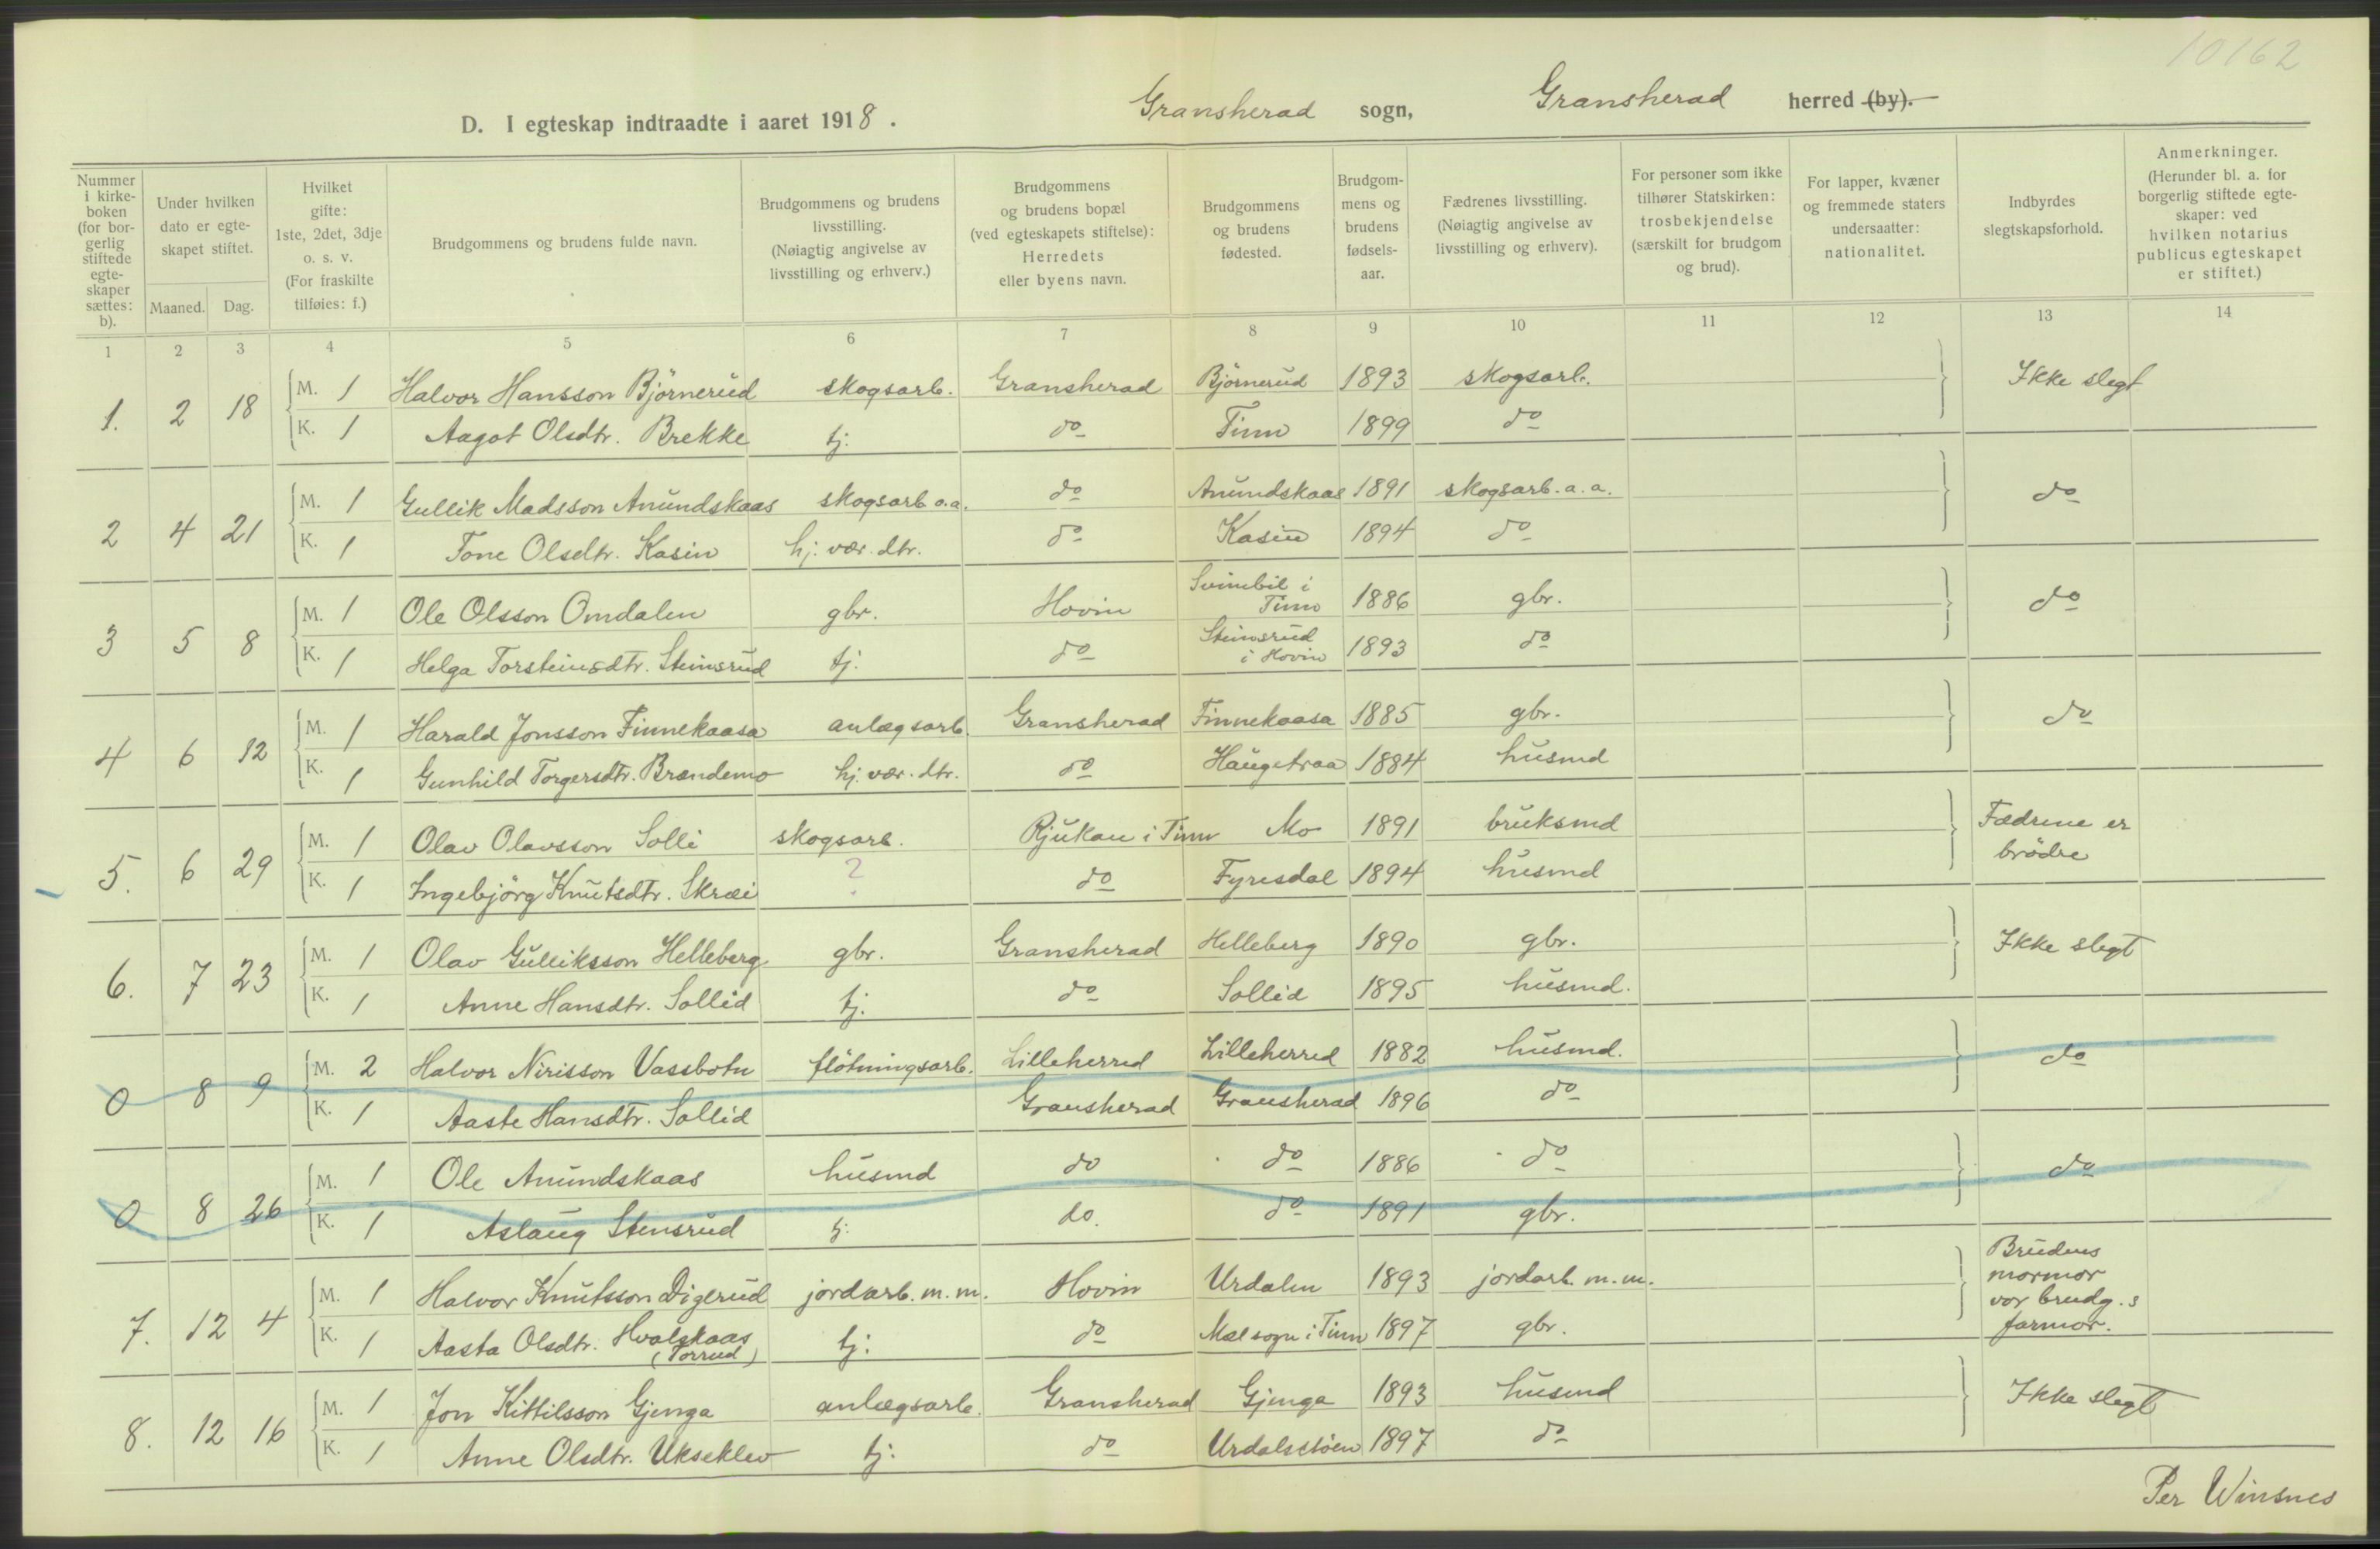 10162
D. I egteskap indtraadte i aaret 1918. Gransherad sogn, Gransherad herred (by).
Nummer i kirke-boken (for bor-gerlig stiftede egte-skaper sættes: b).
Under hvilken dato er egte-skapet stiftet.
Maaned. Dag.
Hvilket gifte: 1ste, 2det, 3dje o. s. v. (For fraskilte tilføies: f.)
Brudgommens og brudens fulde navn.
Brudgommens og brudens livsstilling. (Nøiagtig angivelse av livsstilling og erhverv.)
Brudgommens og brudens bopæl (ved egteskapets stiftelse): Herredets eller byens navn.
Brudgommens og brudens fødested.
Brudgom-mens og brudens fødsels-aar.
Fædrenes livsstilling. (Nøiagtig angivelse av livsstilling og erhverv).
For personer som ikke tilhører Statskirken: trosbekjendelse (særskilt for brudgom og brud).
For lapper, kvæner og fremmede staters undersaatter: nationalitet.
Indbyrdes slegtskapsforhold.
Anmerkninger. (Herunder bl. a. for borgerlig stiftede egte-skaper: ved hvilken notarius publicus egteskapet er stiftet.)
1 2 3 4 5 6 7 8 9 10 11 12 13 14
1. 2 18 M. 1 Halvor Hansson Björnerud skogsarb. Gransherad Björnerud 1893 skogsarb. Ikke slegt
K. 1 Aagot Olsdtr. Brekke tj. do Tinn 1899 do
2 4 21 M. 1 Gullik Madsson Anundskaas skogsarb o.a. do Anundskaas 1891 skogsarb. a. a. do
K. 1 Tone Olsdtr. Kasin hj. vær. dtr. do Kasin 1894 do
3 5 8 M. 1 Ole Olsson Omdalen gbr. Hovin Svinebil i Tinn 1886 gbr. do
K. 1 Helga Torsteinsdtr. Steinsrud tj. do Steinsrud i Hovin 1893 do
4 6 12 M. 1 Harald Jonsson Finnekaasa anlægsarb. Gransherad Finnekaasa 1885 gbr. do
K. 1 Gunhild Torgersdtr. Brændemo hj. vær. dtr. do Haugetraa 1884 husmd
5. 6 29 M. 1 Olav Olavsson Solli skogsarb. Rjukan i Tinn Mo 1891 bruksmd Fædrene er brödre
K. 1 Ingebjörg Knutsdtr. Skræi ? do Fyresdal 1894 husmd
6. 7 23 M. 1 Olav Gulliksson Helleberg gbr. Gransherad Helleberg 1890 gbr. Ikke slegt
K. 1 Anne Hansdtr. Sollid tj. do Sollid 1895 husmd.
0 8 9 M. 2 Halvor Nirisson Vassbotn flötningsarb. Lilleherred Lilleherred 1882 husmd. do
K. 1 Aaste Hansdtr. Sollid Gransherad Gransherad 1896 do
0 8 26 M. 1 Ole Anundskaas husmd do do 1886 do do
K. 1 Aslaug Stensrud tj. do. do 1891 gbr.
7. 12 4 M. 1 Halvor Knutsson Digerud jordarb. m. m. Hovin Urdalen 1893 jordarb. m. m. Brudens mormor vor brudg.s farmor.
K. 1 Aasta Olsdtr. Hvalskaas (Torrud) tj. do Mæl sogn i Tinn 1897 gbr.
8. 12 16 M. 1 Jon Kittilsson Gjenga anlægsarb. Gransherad Gjenga 1893 husmd Ikke slegt
K. 1 Anne Olsdtr. Ukseklev tj. do Urdalsstöen 1897 do
Per Winsnes